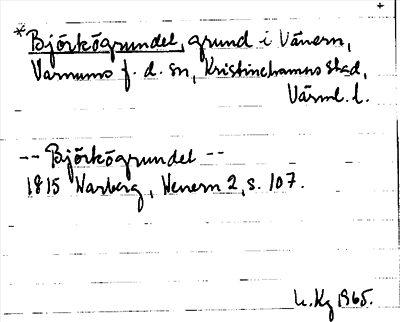 *Björkögrundet, grund i Vänern,
Varnums f. d. sn, Kristinehamns stad,
Värml. l.
-- Björkögrundet --
1815 Warberg, Wenern 2, s. 107.
1965.